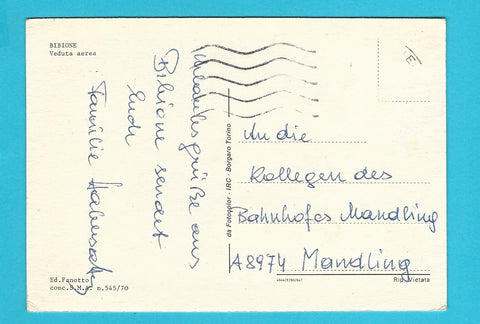 BIBIONE
Veduta aerea
grüße aus
Bibione sendet
Euch
Familie
Ed.Fanotto
conc.S.M.A. n.545/70
da Fotocolor - IRC - Borgaro Torino
An die
Kollegen des
Bahnhofes Mandling
A8974 Mandling
Rip. Vietata